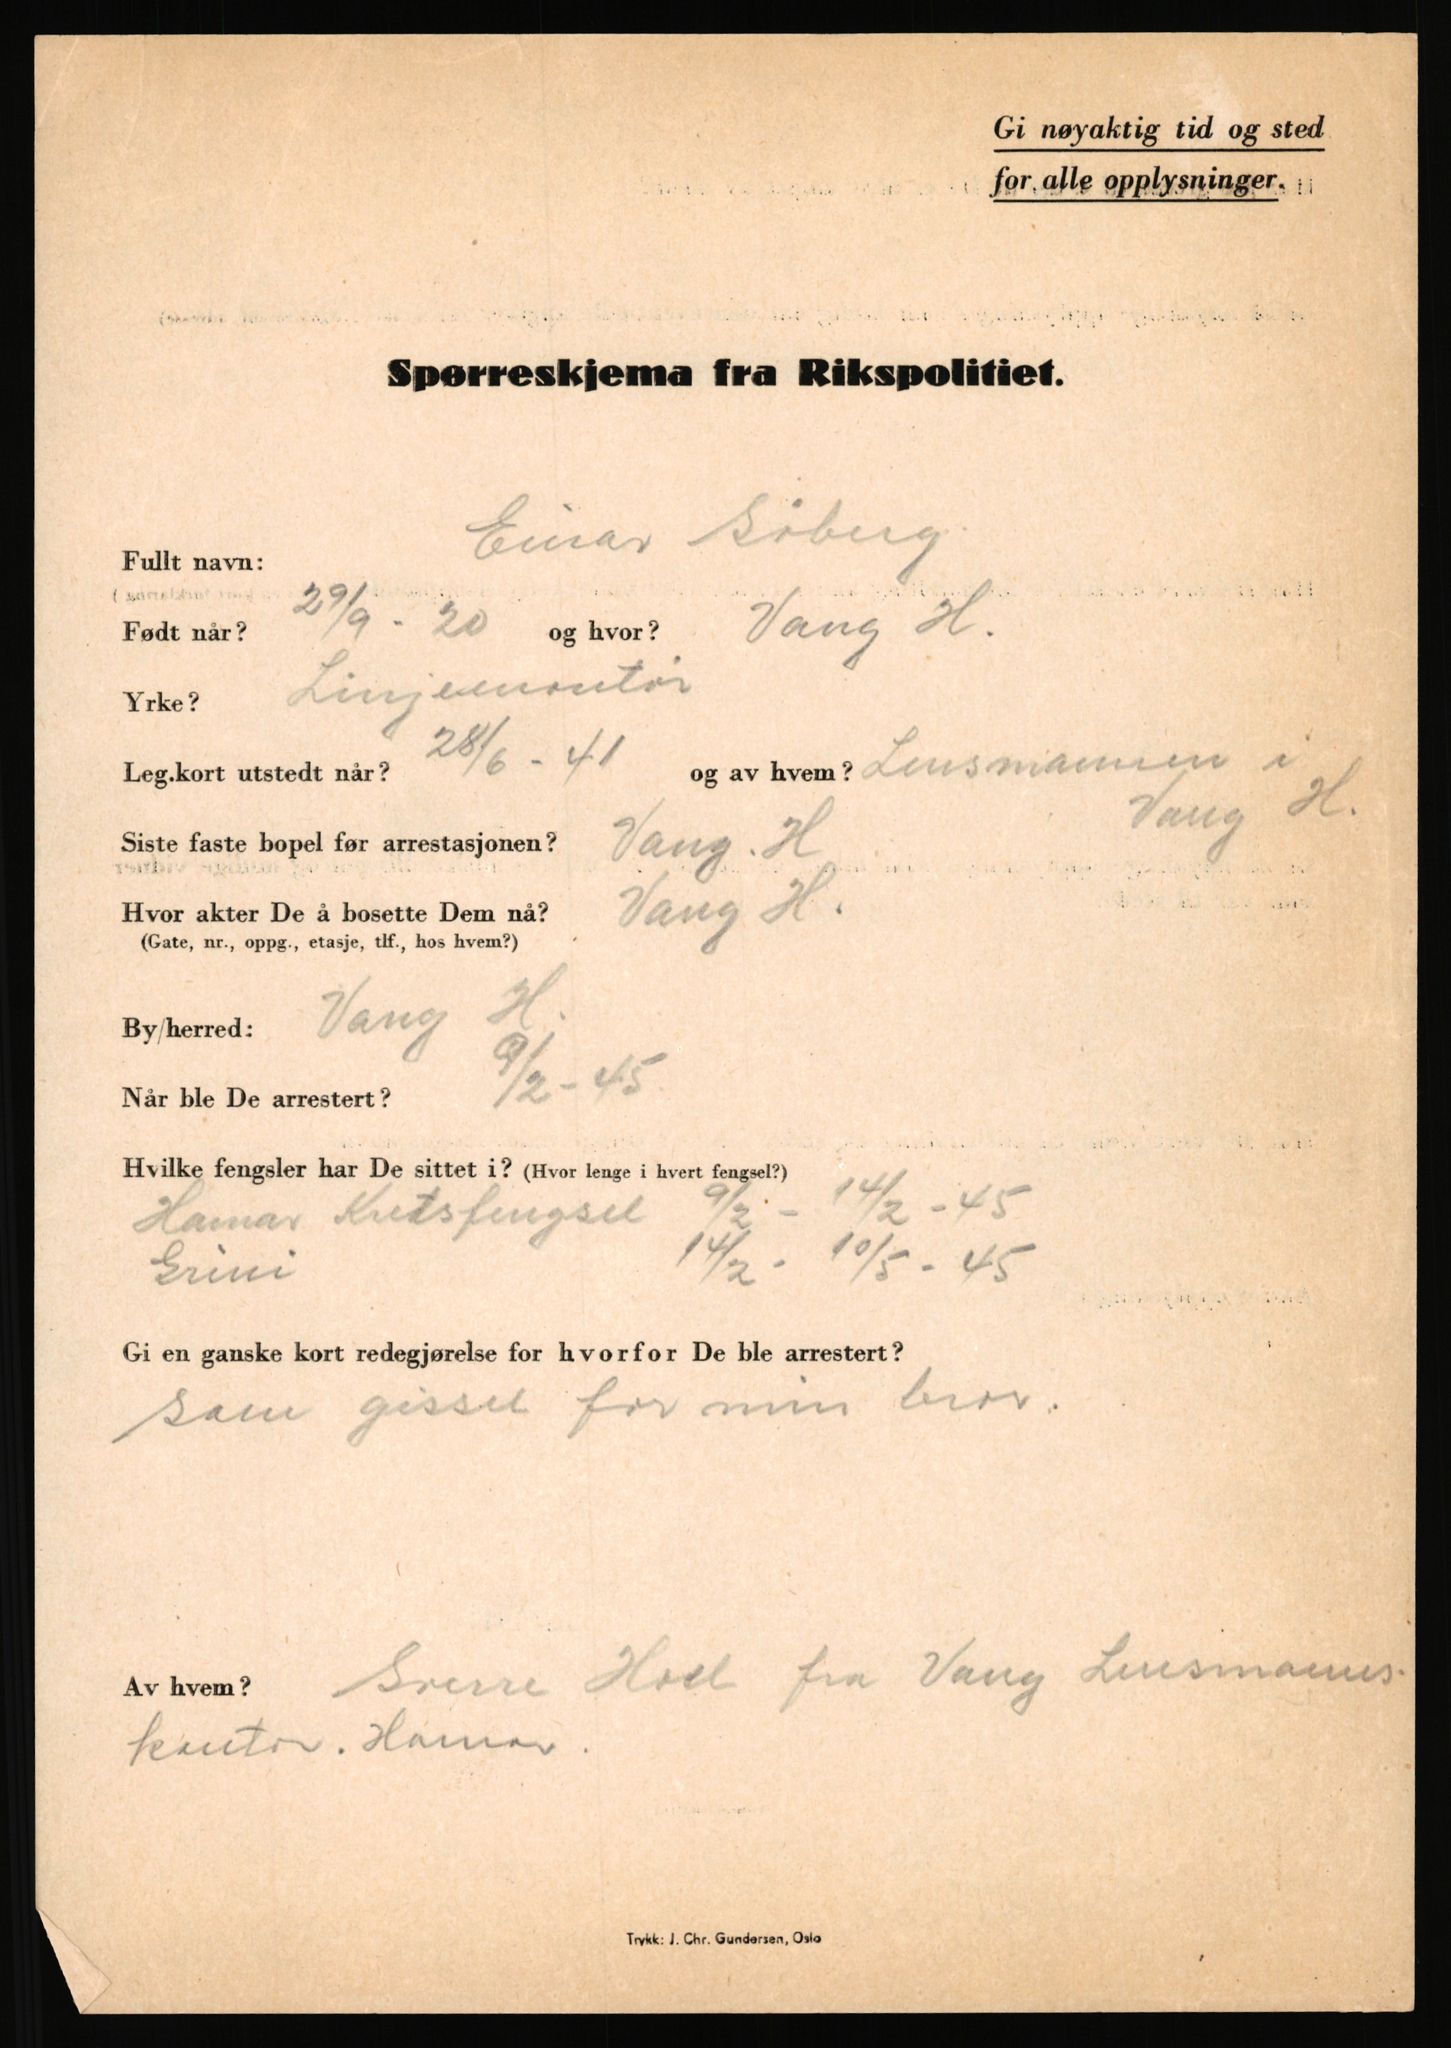 Gi nøyaktig tid og sted
for alle opplysninger.
Spørreskjema fra Rikspolitiet.
Fullt navn: Einar Søberg
Født når? 29/9 - 20 og hvor? Vang H.
Yrke? Linjemontør
Leg.kort utstedt når? 28/6 - 41 og av hvem? Lensmannen i
Vang H.
Siste faste bopel før arrestasjonen? Vang. H
Hvor akter De å bosette Dem nå? Vang H.
(Gate, nr., oppg., etasje, tlf., hos hvem?)
By/herred: Vang H.
Når ble De arrestert? 9/2 - 45
Hvilke fengsler har De sittet i? (Hvor lenge i hvert fengsel?)
Hamar Kretsfengsel 9/2 - 14/2 - 45
Grini 14/2 - 10/5 - 45
Gi en ganske kort redegjørelse for hvorfor De ble arrestert?
som gissel for min bror.
Av hvem? Sverre Hoel fra Vang Lensmanns-
kontor. Hamar.
Trykk: J. Chr. Gundersen, Oslo